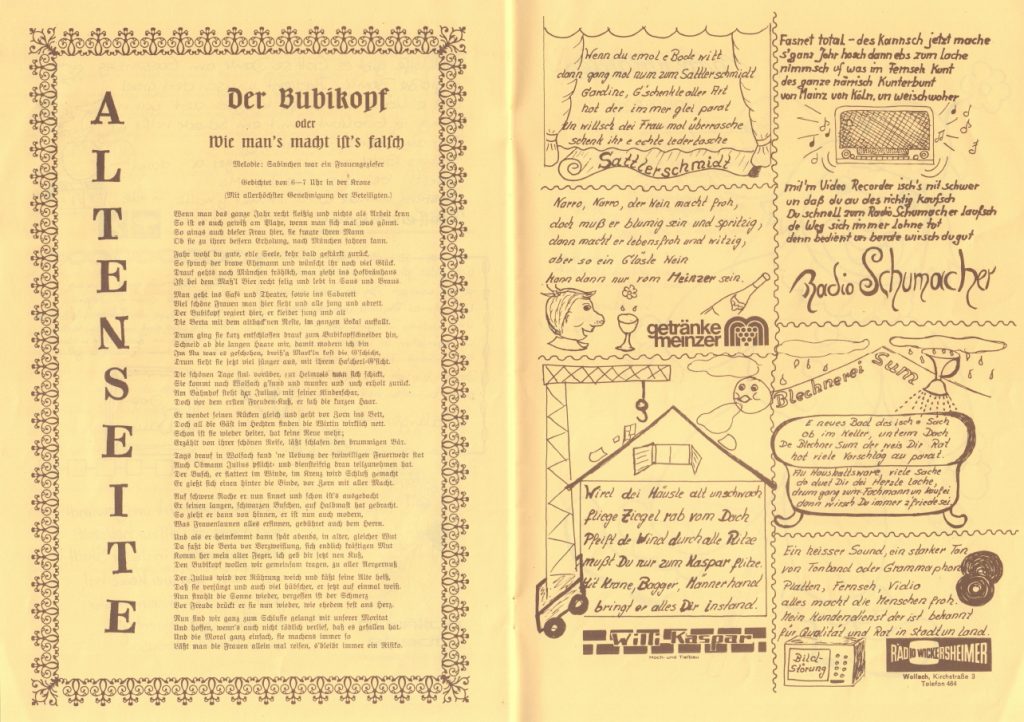 ALTENSEITE
Der Bubikopf
oder
Wie man's macht ist's falsch
Melodie: Sabinchen war ein Frauenzimmer
Gedichtet von 6—7 Uhr in der Krone
(Mit allerhöchster Genehmigung der Beteiligten.)
Wenn man das ganze Jahr recht fleißig und nichts als Arbeit kenn
So ist es auch gewiß am Platze, wenn man sich mal was gönnt.
So gings auch dieser Frau hier, sie fragte ihren Mann
Ob sie zu ihrer bessern Erholung, nach München fahren kann.
Jahr wohl du gute, edle Seele, kehr bald gestärkt zurück,
So sprach der brave Ehemann und wünscht ihr noch viel Glück.
Drauf gehts nach München fröhlich, man zieht ins Hofbräuhaus
Ist bei dem Maß'l Bier recht selig und lebt in Saus und Braus.
Man geht ins Café und Theater, sowie ins Cabarett
Viel schöne Frauen man hier sieht und alle jung und adrett.
Der Bubikopf regiert hier, er kleidet jung und alt
Die Berta mit dem altback'nen Neste, im ganzen Lokal auffällt.
Drum ging sie kurz entschlossen drauf zum Bubikopfschneider hin,
Schneid ab die langen Haare mir, damit modern ich bin
Im Nu war es geschehen, dreiß'g Mark'ln kost die G'schicht,
Drum sieht sie jetzt viel jünger aus, mit ihrem Hascherl-G'sicht.
Die schönen Tage sind vorüber, zur Heimreis man sich schickt,
Sie kommt nach Wolfach g'sund und munter und auch erholt zurück.
Am Bahnhof steht der Julius, mit seiner Kinderschar,
Doch vor dem ersten Freuden-Kuß, er sah die kurzen Haar.
Er wendet seinen Rücken gleich und geht vor Zorn ins Bett,
Doch all die Gäst im Hechten finden die Wirtin wirklich nett.
Schon ist sie wieder heiter, hat keine Reue mehr,
Erzählt von ihrer schönen Reise, läßt schlafen den brummigen Bär.
Tags drauf in Wolfach fand 'ne Uebung der freiwilligen Feuerwehr statt
Auch Obmann Julius pflicht- und dienstfeifrig dran teilzunehmen hat.
Der Busch, er flattert im Winde, im Kreuz wird Schluß gemacht
Er gießt sich einen hinter die Binde, vor Zorn mit aller Macht.
Auf schwere Rache er nun sinnet und schon ist's ausgedacht
Er seinen langen, schwarzen Buschen, auf Halbmast hat gebracht.
So zieht er dann von hinnen, er ist nun auch modern,
Was Frauenlaunen alles ersinnen, gebühret auch dem Herrn.
Und als er heimkommt dann spät abends, in alter, gleicher Wut
Da faßt die Berta vor Verzweiflung, sich endlich kräftigen Mut
Komm her mein alter Feger, ich geb dir jetzt nen Kuß,
Den Bubikopf wollen wir gemeinsam tragen, zu aller Aergernuß
Der Julius wird vor Rührung weich und küßt seine Alte heiß,
Daß sie verjüngt und auch viel hübscher, er jetzt auf einmal weiß.
Nun strahlt die Sonne wieder, vergessen ist der Schmerz
Vor Freude drückt er sie nun wieder, wie ehedem fest ans Herz.
Nun sind wir ganz zum Schlusse gelangt mit unsrer Moritat
Und hoffen, wenn's auch nicht tödlich verlief, daß es gefallen hat.
Und die Moral ganz einfach, sie machens immer so
Läßt man die Frauen allein mal reisen, s'bleibt immer ein Risiko.
Wenn du emol e Bode witt
dann gang mol num zum Sattlerschmidt
Gardine, G'schenkle aller Art
hot der immer glei parat
Un willsch dei Frau mol überrasche
schenk ihr e echte Ledertasche
Sattlerschmidt
Narro, Narro, der Wein macht froh,
doch muß er blumig sein und spritzig,
dann macht er lebensfroh und witzig,
aber so ein Glasle Wein
kann dann nur vom Meinzer sein.
getränke
meinzer
Wird dei Häusle alt un schwach
fliege Ziegel rab vom Dach
Pfeift de Wind durch alle Ritze
mußt Du nur zum Kaspar flitze.
Mit Krane, Bagger, Männerhand
bringt er alles Dir instand.
Willi Kaspar
Hoch- und Tiefbau
Fasnet total – des kannsch jetzt mache
s'ganz Johr hosch dann ebs zum lache
nimmsch uf was im Fernseh kunt
des ganze närrisch Kunterbunt
von Mainz von Köln, un weischwoher
mit'm Video Recorder isch's nit schwer
un daß du au des richtig kaufsch
Du schnell zum Radio Schumacher laufsch
de Weg sich immer lohne tot
denn bedient un berate wirsch du gut
Radio Schumacher
Blechnerei Sum
E neues Bad des isch e Sach
ob im Keller, unterm Dach
De Blechner Sum der weis Dir Rat
hot viele Vorschläg au parat.
Au Haushaltsware, viele Sache
do duet Dir des Herzle lache,
drum gang zum Fachmann un kauf ei
dann wirsch Du immer z'friede sei.
Ein heisser Sound, ein starker Ton
von Tonband oder Grammophon
Platten, Fernseh, Vidio
alles macht die Menschen froh.
Mein Kundendienst der ist bekannt
für Qualität und Rat in Stadt un Land.
Bild-
Störung
RADIO WICKERSHEIMER
Wolfach, Kirchstraße 3
Telefon 464